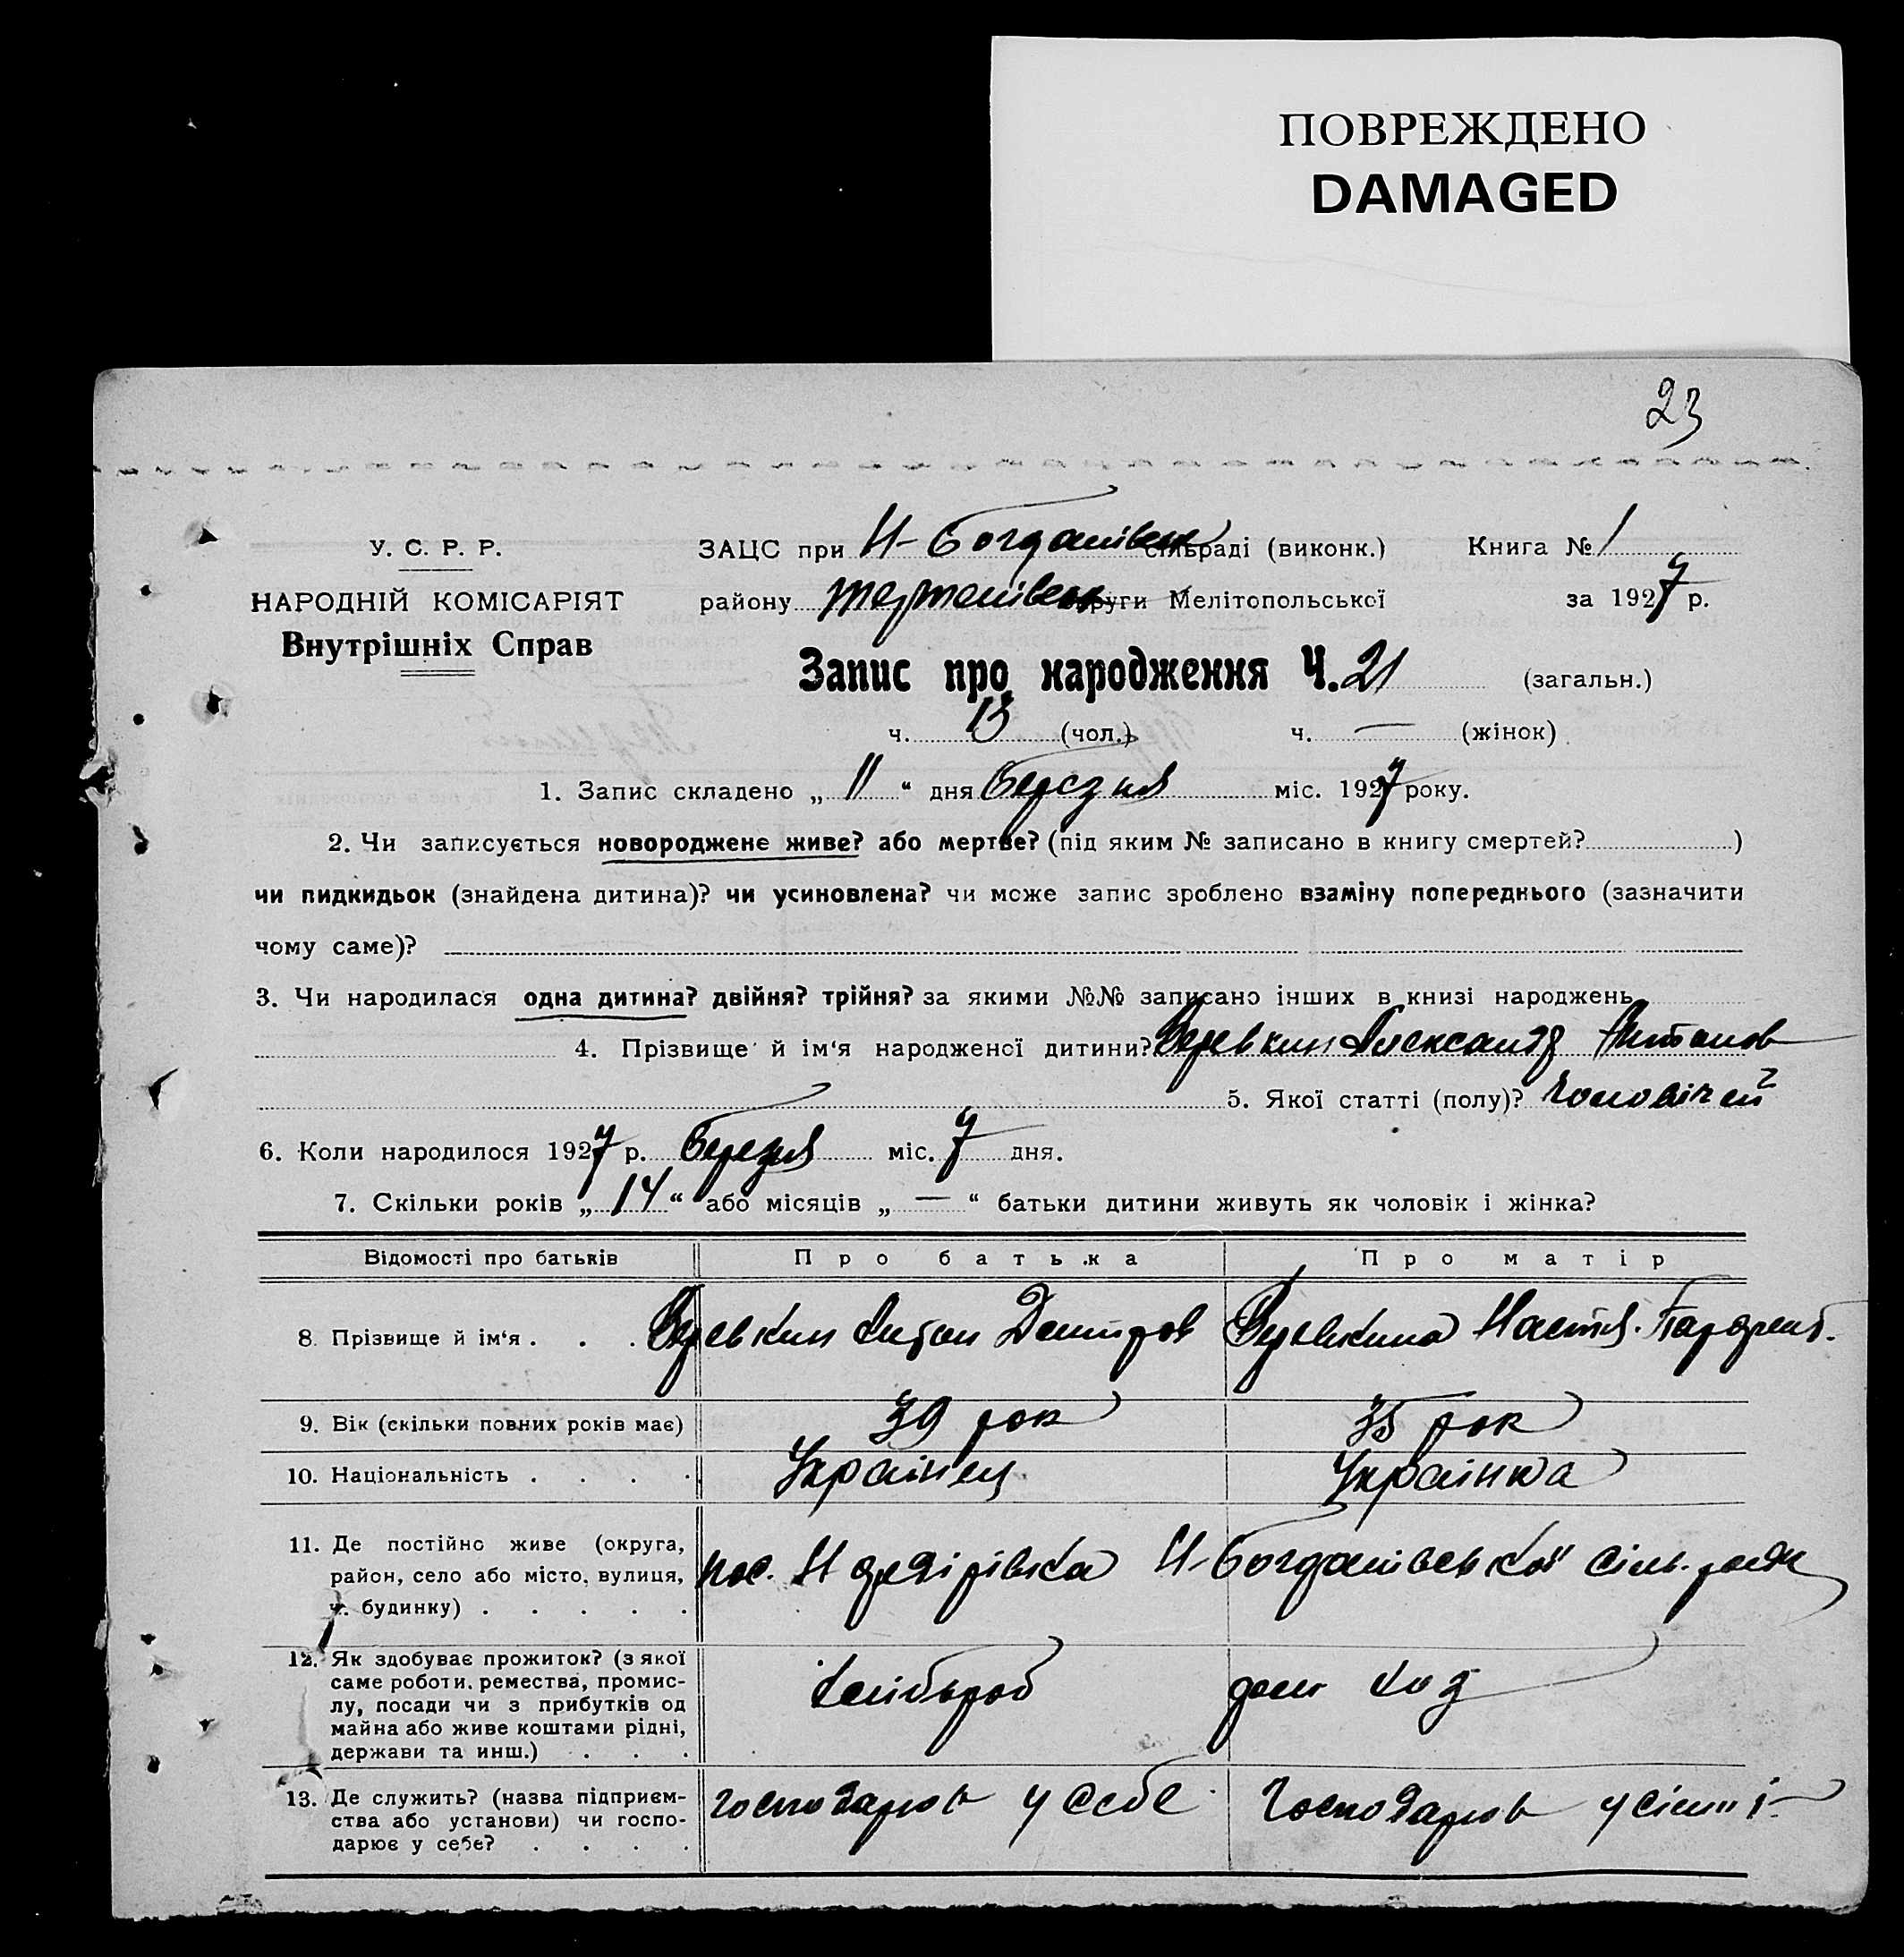 ПОВРЕЖДЕНО
DAMAGED
23
У. С. Р. Р.
НАРОДНІЙ КОМІСАРІЯТ
Внутрішніх Справ
ЗАЦС при Н-Богданівск сільраді (виконк.) Книга № 1
району округи Мелітопольської за 1927 р.
Запис про народження Ч. 21 (загальн.)
ч. 13 (чол.) ч. — (жінок)
1. Запис складено „ 11 “ дня березня міс. 1927 року.
2. Чи записується новороджене живе? або мертве? (під яким № записано в книгу смертей? )
чи пидкидьок (знайдена дитина)? чи усиновлена? чи може запис зроблено взаміну попереднього (зазначити
чому саме)?
3. Чи народилася одна дитина? двійня? трійня? за якими №№ записано інших в книзі народжень
4. Прізвище й ім‘я народженої дитини? Веревкин Александр Антонов
5. Якої статті (полу)? чоловічей
6. Коли народилося 1927 р. березня міс. 7 дня.
7. Скільки років „ 14 “ або місяців „ — “ батьки дитини живуть як чоловік і жінка?
Відомості про батьків Про батька Про матір
8. Прізвище й ім‘я . . . Веревкин Антон Дмитров Веревкина Настя
9. Вік (скільки повних років має) 39 рок 35 рок
10. Національність . . . . Українец Українка
11. Де постійно живе (округа,
район, село або місто, вулиця,
ч. будинку) . . . . .
пос. Н Н-Богданівськоі сіль.
12. Як здобуває прожиток? (з якої
саме роботи, ремества, промис-
лу, посади чи з прибутків од
майна або живе коштами рідні,
держави та инш.) . . .
хлібороб дом хоз
13. Де служить? (назва підприєм-
ства або установи) чи госпо-
дарює у себе? . . . .
господарюв у себе господарюв у сімі